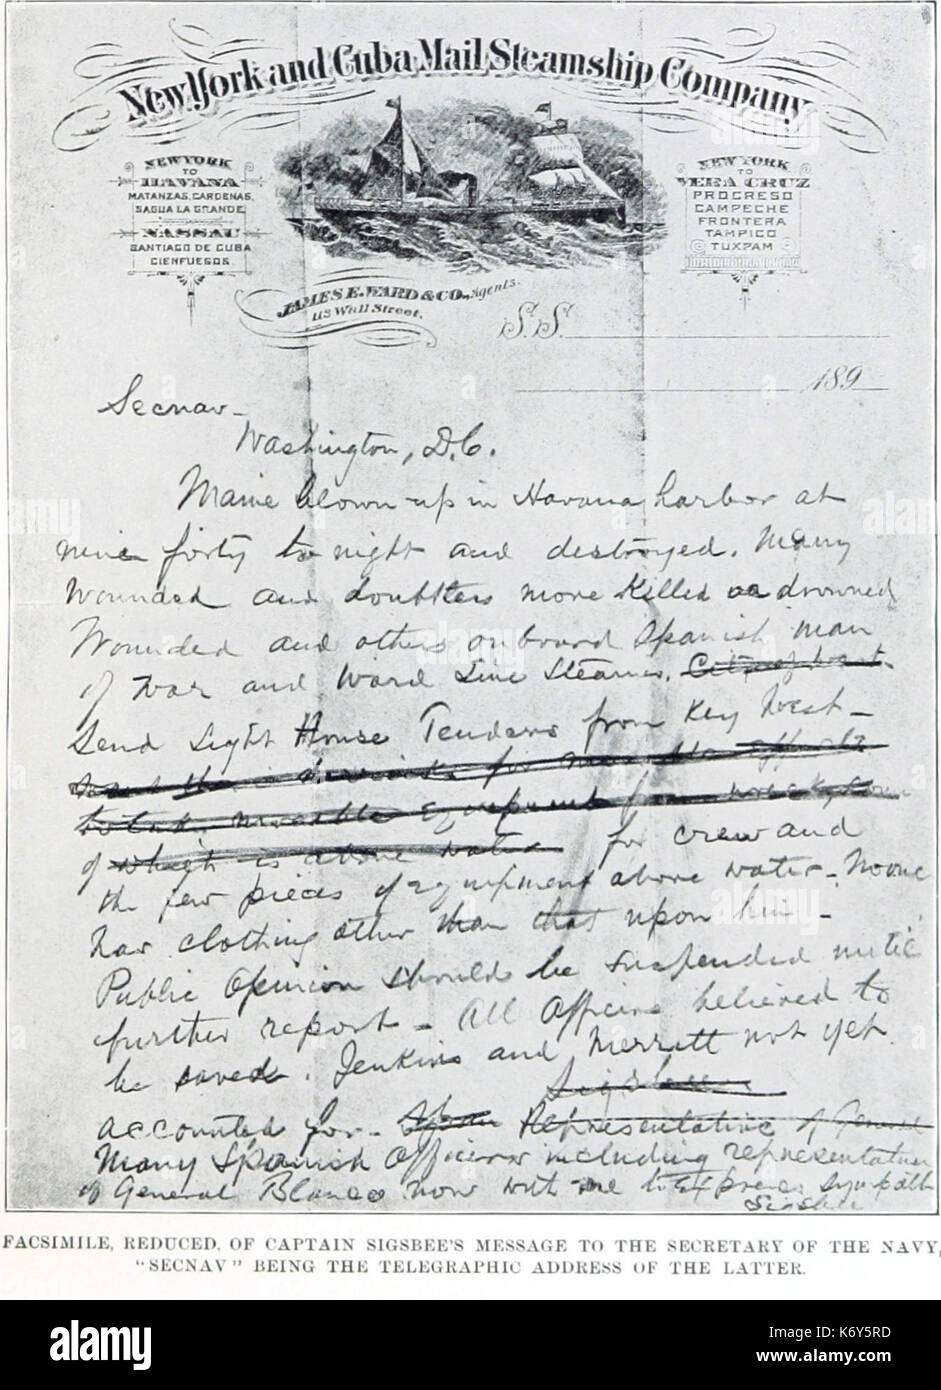 New York and Cuba Mail Steamship Company
NEW YORK
TO
HAVANA
MATANZAS, CARDENAS,
SAGUA LA GRANDE
NASSAU
SANTIAGO DE CUBA
CIENFUEGOS
NEW YORK
TO
VERA CRUZ
PROGRESO
CAMPECHE
FRONTERA
TAMPICO
TUXPAM
JAMES E. WARD & CO., Agents.
113 Wall Street.
S.S.
189
Secnav—
Washington, D.C.
Maine blown up in Havana harbor at
nine forty to night and destroyed. Many
wounded and doubtless more killed or drowned
Wounded and others on board Spanish man
of war and Ward Line Steamer.
Send Light House Tenders from Key West—
of which is above water for crew and
the few pieces of equipment above water. No one
has clothing other than that upon him—
Public Opinion should be suspended until
further report— All Officers believed to
be saved. Jenkins and Merritt not yet
Sigsbee
accounted for— Representative of General
Many Spanish Officers including representatives
of General Blanco now with me to express sympathy
Sigsbee
FACSIMILE, REDUCED, OF CAPTAIN SIGSBEE'S MESSAGE TO THE SECRETARY OF THE NAVY,
"SECNAV" BEING THE TELEGRAPHIC ADDRESS OF THE LATTER.
alamy
Image ID: K6Y5RD
www.alamy.com